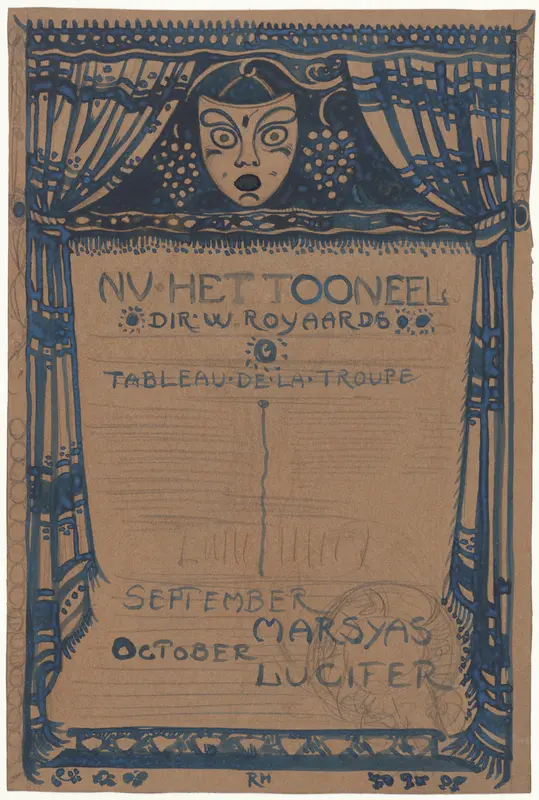 NV·HET TOONEEL
DIR·W·ROYAARDS
TABLEAU·DE·LA·TROUPE
SEPTEMBER
MARSYAS
OCTOBER
LUCIFER
RH